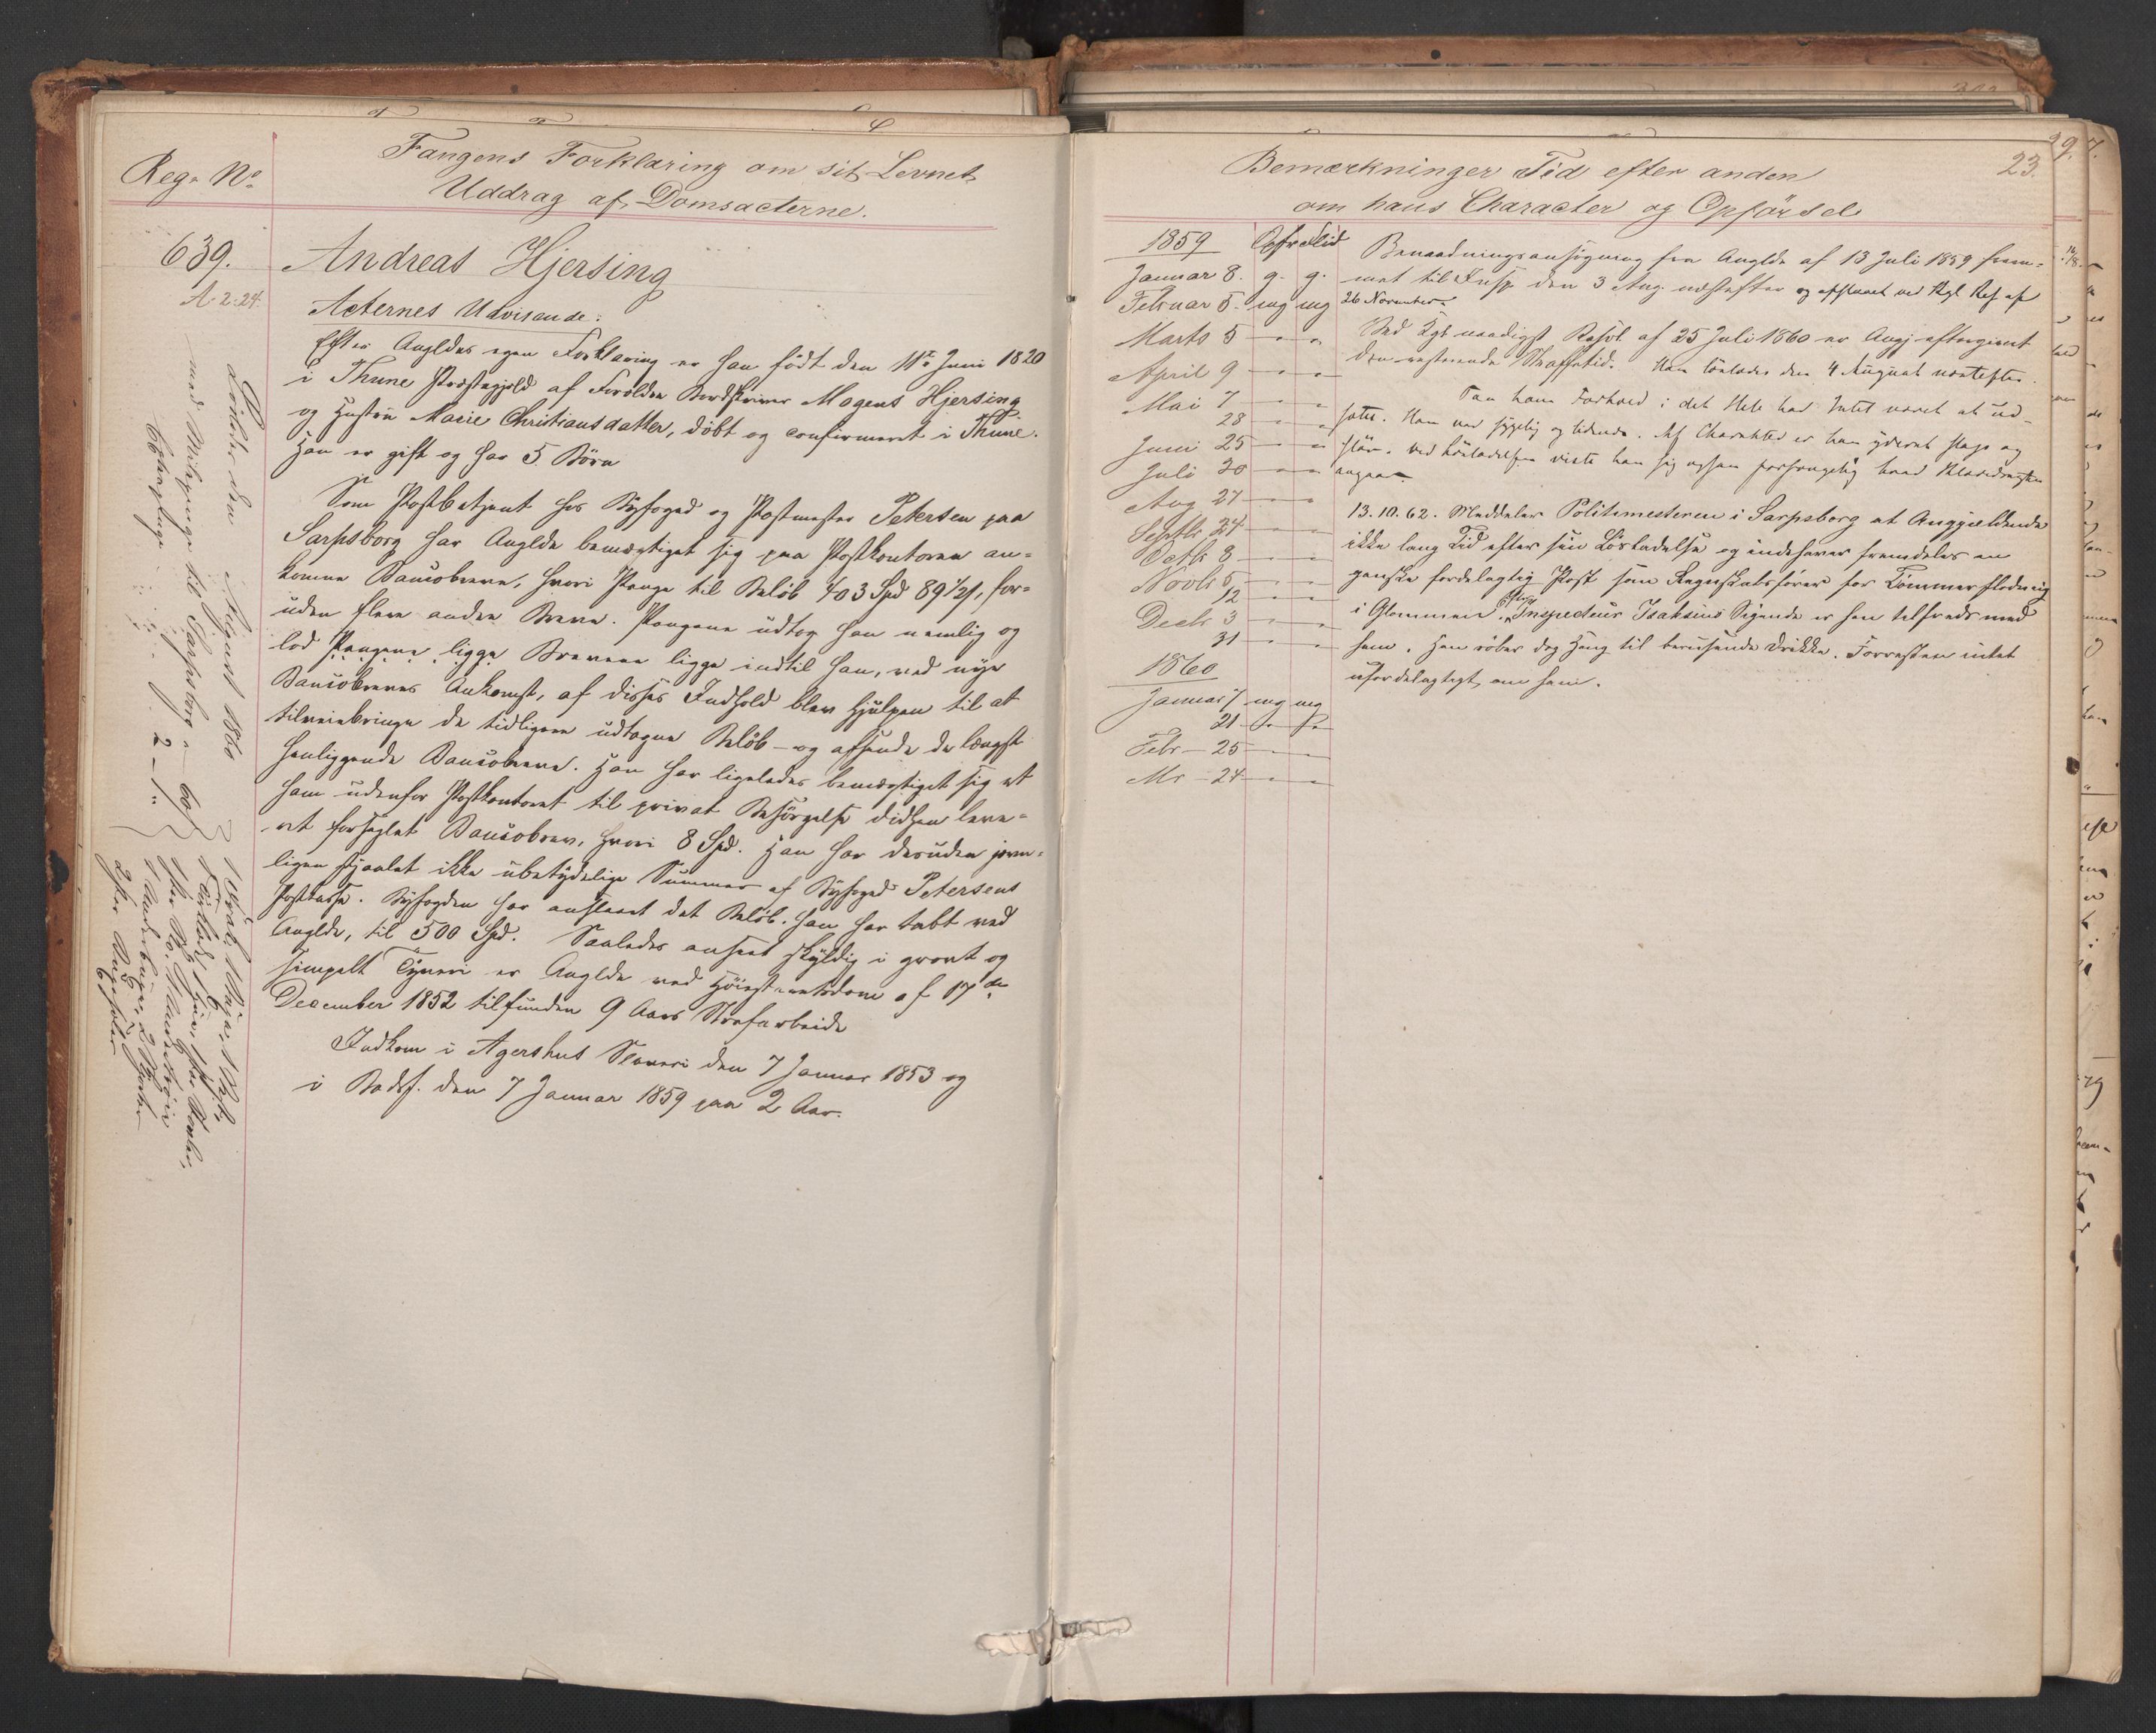 Reg. No.
Fangens Forklaring om sit Levnet,
Uddrag af Domsacterne.
639.
A. 2. 24.
Andreas Hjersing
Acternes Udvisende:
Efter Angldes egen Forklaring er han födt den 11te Juni 1820
i Thune Præstegjeld af Forældre Mogens Hjersing
og Hustru Marie Christiansdatter, döbt og confirmeret i Thune.
Han er gift og har 5 Börn
Som Postbetjent hos Byfoged og Postmester Petersen paa
Sarpsborg har Anglde bemægtiget sig paa Postkontoren an-
komne Bancobreve, hvori Penge til Belöb 403 Spd 89 1/2 ſ, for-
uden flere andre Breve. Pengene udtog han nemlig og
lod Pengene ligge Brevene ligge indtil han, ved nye
Bancobreves Ankomst, af disses Indhold blev hjulpen til at
tilveiebringe de tidligere udtagne Belöb - og afsende de længst
henliggende Bancobreve. Han har ligeledes bemægtiget sig et
ham udenfor Postkontoret til privat Besörgelse didhen leve-
ret forseglet Bancobrev, hvori 8 Spd. Han har desuden jevn-
ligen stjaalet ikke ubetydelige Summer af Byfoged Petersens
Postkasse. Byfogden har anslaaet det Belöb, han har tabt ved
Anglde, til 500 Spd. Saaledes anseet skyldig i grovt og
simpelt Tyveri er Anglde ved Höiesteretsdom af 17de
December 1852 tilfunden 9 Aars Strafarbeide
Indkom i Agershus Slaveri den 7 Januar 1853 og
i Bodsf. den 7 Januar 1859 paa 2 Aar.
Löslodes den 4 August 1860
med Milepenge til Sarpsborg
Bemærkninger Tid efter anden
om hans Character og Opförsel
23.
1859 Opfr Flid
Januar 8. g. g.
Februar 5. mg mg
Marts 5 " "
April 9 " "
Mai 7 " "
28 " "
Juni 25 " "
Juli 30 " "
Aug 27 " "
Septbr 24 " "
Octb 8 " "
Novbr 5 " "
12 " "
Decbr 3 " "
31 " "
1860
Januar 7 mg mg
21 " "
Febr - 25 " "
Mr - 24 " "
Benaadningsansögning fra Anglde af 13 Juli 1859 frem-
met til Insp. den 3 Aug. næstefter og afslaaet ved Kgl Res af
26 November
Ved Kgl naadigst Resol. af 25 Juli 1860 er Angj. eftergivet
den resterende Straffetid. Han löslodes den 4 August næstefter.
Paa hans Forhold i det Hele har Intet været at ud-
sætte. Han var sygelig og lidende. Af Charakter er han yderst slap og
slöv. Ved Lösladelsen viste han sig ogsaa forfængelig hvad Klædedragten
angaar.
13.10.62. Meddeler Politimesteren i Sarpsborg at Angjældende
ikke lang Tid efter sin Lösladelse og indehaver fremdeles en
ganske fordelagtig Post som Regnskabsförer for Tömmerflodning
i Glommen. Efter Inspecteur Isaksens Sigende er han tilfreds med
ham. Han röber dog Hang til berusende Drikke. Forresten intet
ufordelagtigt om ham.